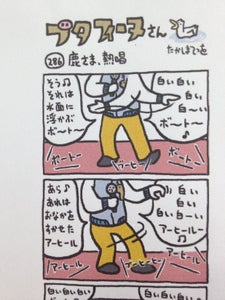 ブタフィーヌさん
たかしまてつを
286 鹿さま、熱唱
白い白い
白い
白ーい
ボ〜ト〜
そう♫
それは
水面に
浮かぶ
ボ〜ト〜
ボートー
ブーヒー
ボートー
白い
白い
白ーい
アーヒールー
♫
あら♪
あれは
おなかを
すかせた
アーヒール
アーヒール
アーヒール
白い白い
白い白い